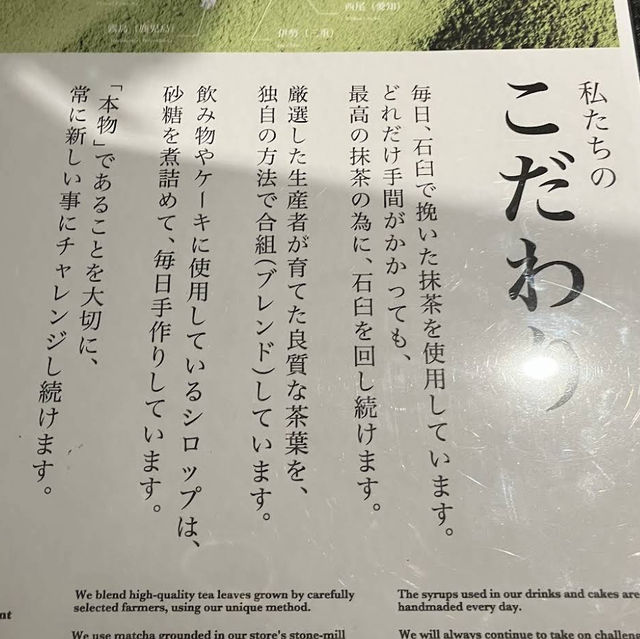 西尾（愛知）
霧島（鹿児島）
伊勢（三重）
私たちの
こだわり
毎日、石臼で挽いた抹茶を使用しています。
どれだけ手間がかかっても、
最高の抹茶の為に、石臼を回し続けます。
厳選した生産者が育てた良質な茶葉を、
独自の方法で合組（ブレンド）しています。
飲み物やケーキに使用しているシロップは、
砂糖を煮詰めて、毎日手作りしています。
「本物」であることを大切に、
常に新しい事にチャレンジし続けます。
We blend high-quality tea leaves grown by carefully
selected farmers, using our unique method.
We use matcha grounded in our store's stone-mill
The syrups used in our drinks and cakes are
handmaded every day.
We will always continue to take on challen